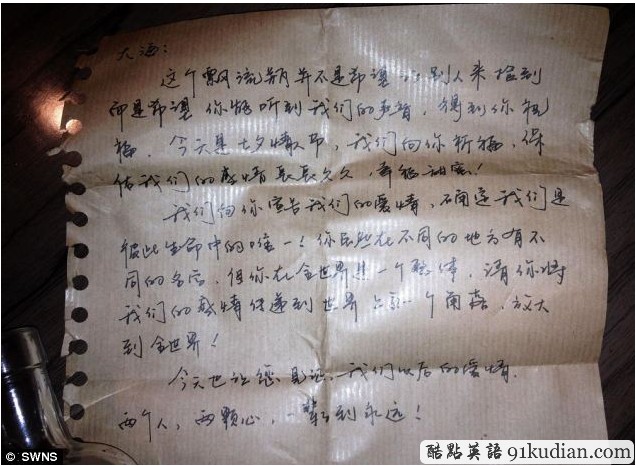 大海：
这个漂流瓶并不是希望让别人来捡到
而是希望你能听到我们的声音，得到你祝
福，今天是七夕情人节，我们向你祈福，保
佑我们的感情长长久久，幸福甜蜜！
我们向你宣告我们的爱情，确定我们是
彼此生命中的唯一！你虽然在不同的地方有不
同的名字，但你在全世界是一个整体，请你将
我们的感情传递到世界每一个角落，放大
到全世界！
今天也让您见证，我们以后的爱情，
两个人，两颗心，一辈子到永远！
© SWNS
酷點英語 91kudian.com